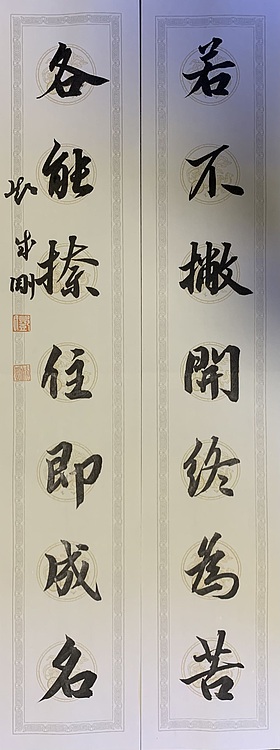 若不撇開終為苦
各能捺住即成名
成剛